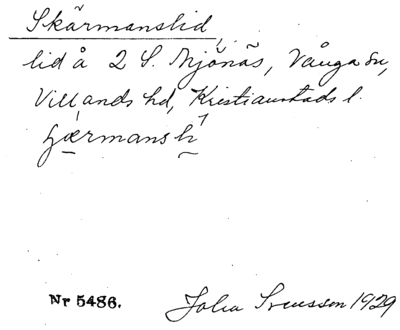 Skärmanslid,
lid å 2 S. Mjönäs, Vånga sn,
Villands hd, Kristianstads l.
Nr 5486. John Svensson 1929